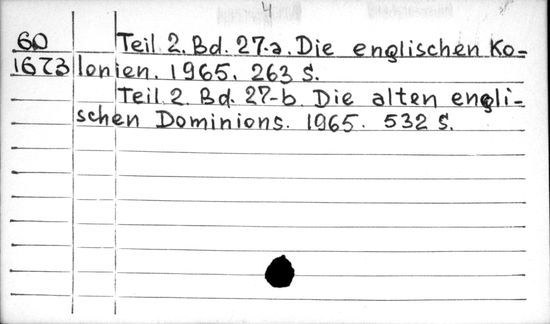 4
60 Teil 2. Bd. 27-a. Die englischen Ko-
1673 lonien. 1965. 263 S.
Teil 2. Bd. 27-b. Die alten engli-
schen Dominions. 1965. 532 S.